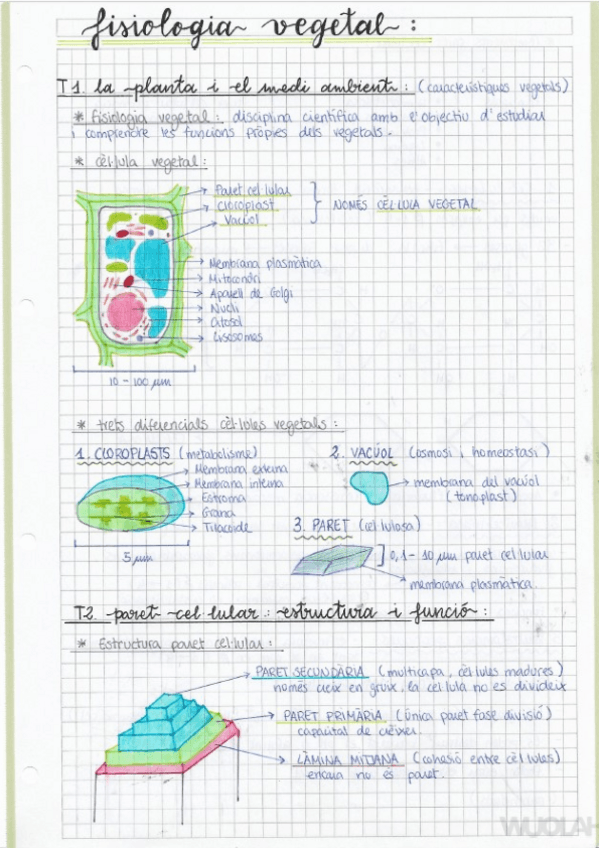 fisiologia vegetal:
T1. la planta i el medi ambient: (característiques vegetals)
* Fisiologia vegetal: disciplina científica amb l'objectiu d'estudiar
i comprendre les funcions pròpies dels vegetals.
* cèl·lula vegetal:
Paret cel·lular
cloroplast
Vacúol
NOMÉS CÈL·LULA VEGETAL
Membrana plasmàtica
Mitocondri
Aparell de Golgi
Nucli
Citosol
Lisosomes
10 - 100 µm
* trets diferencials cèl·lules vegetals:
1. CLOROPLASTS (metabolisme)
Membrana externa
Membrana interna
Estroma
Grana
Tilacoide
5 µm
2. VACÚOL (osmosi i homeostasi)
membrana del vacúol
(tonoplast)
3. PARET (cel·lulosa)
0,1 - 10 µm paret cel·lular
membrana plasmàtica.
T2. paret cel·lular: estructura i funció:
* Estructura paret cel·lular:
PARET SECUNDÀRIA (multicapa, cèl·lules madures)
només creix en gruix, la cèl·lula no es divideix
PARET PRIMÀRIA (única paret fase divisió)
capacitat de créixer.
LÀMINA MITJANA (cohesió entre cèl·lules)
encara no és paret.
WUOLAH